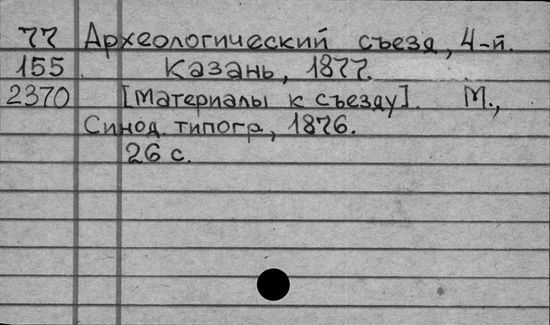 77 Археологический съезд, 4-й.
155 Казань, 1877.
2370 [Материалы к съезду]. М.,
Синод. типогр., 1876.
26 с.